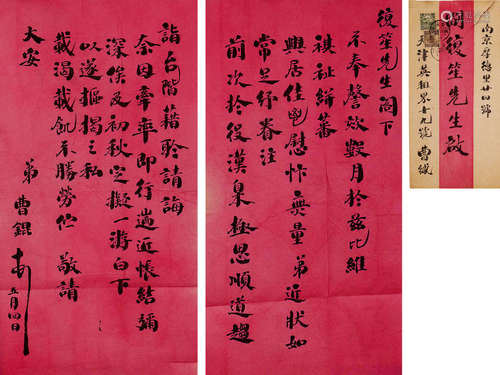 復笙先生閣下
不奉謦欬數月於茲比維
祺祉綏蕃
興居佳鬯慰忭無量弟近狀如
常足紓眷注
前次於役漢皋極思順道趨
詣台階藉聆請誨
奈因牽率即行遄返悵結彌
深俟及初秋定擬一游白下
以遂摳謁之私
載渴載飢不勝勞伫敬請
大安
弟曹錕
五月四日
南京厚德里廿四號
周復笙先生啟
天津英租界廿九號曹緘